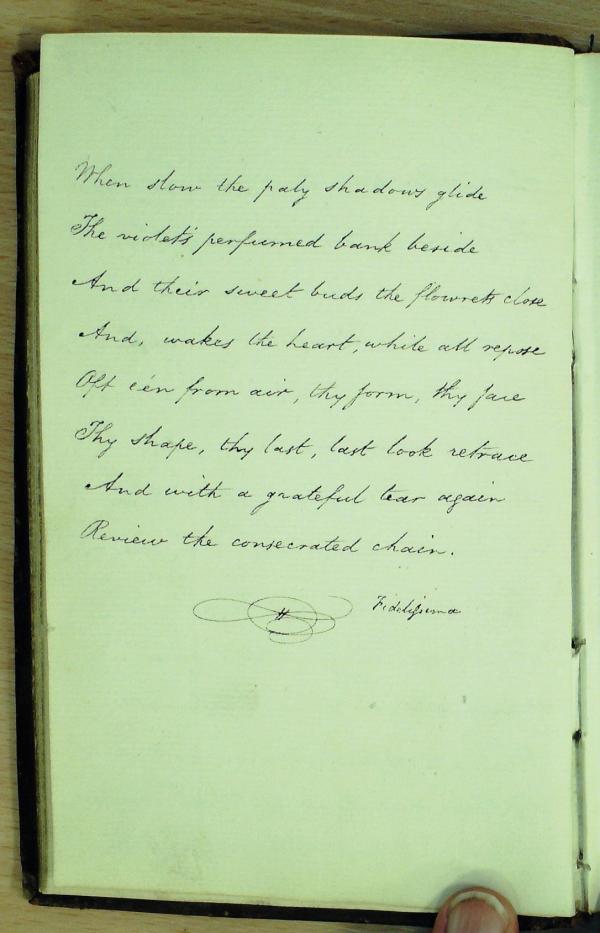 When slow the paly shadows glide
The violet's perfumed bank beside
And their sweet buds the flowrets close
And, wakes the heart, while all repose
Oft e'en from air, thy form, thy face
Thy shape, thy last, last look retrace
And with a grateful tear again
Review the consecrated chain.
Fidelissima